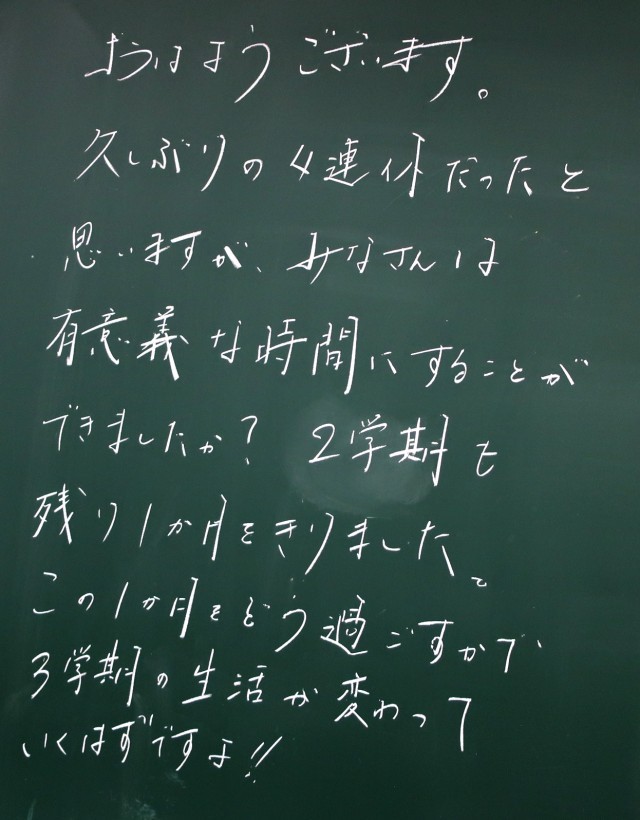 おはようございます。
久しぶりの4連休だったと
思いますが、みなさんは
有意義な時間にすることが
できましたか？ 2学期も
残り1か月をきりました。
この1か月をどう過ごすかで、
3学期の生活が変わって
いくはずですよ!!